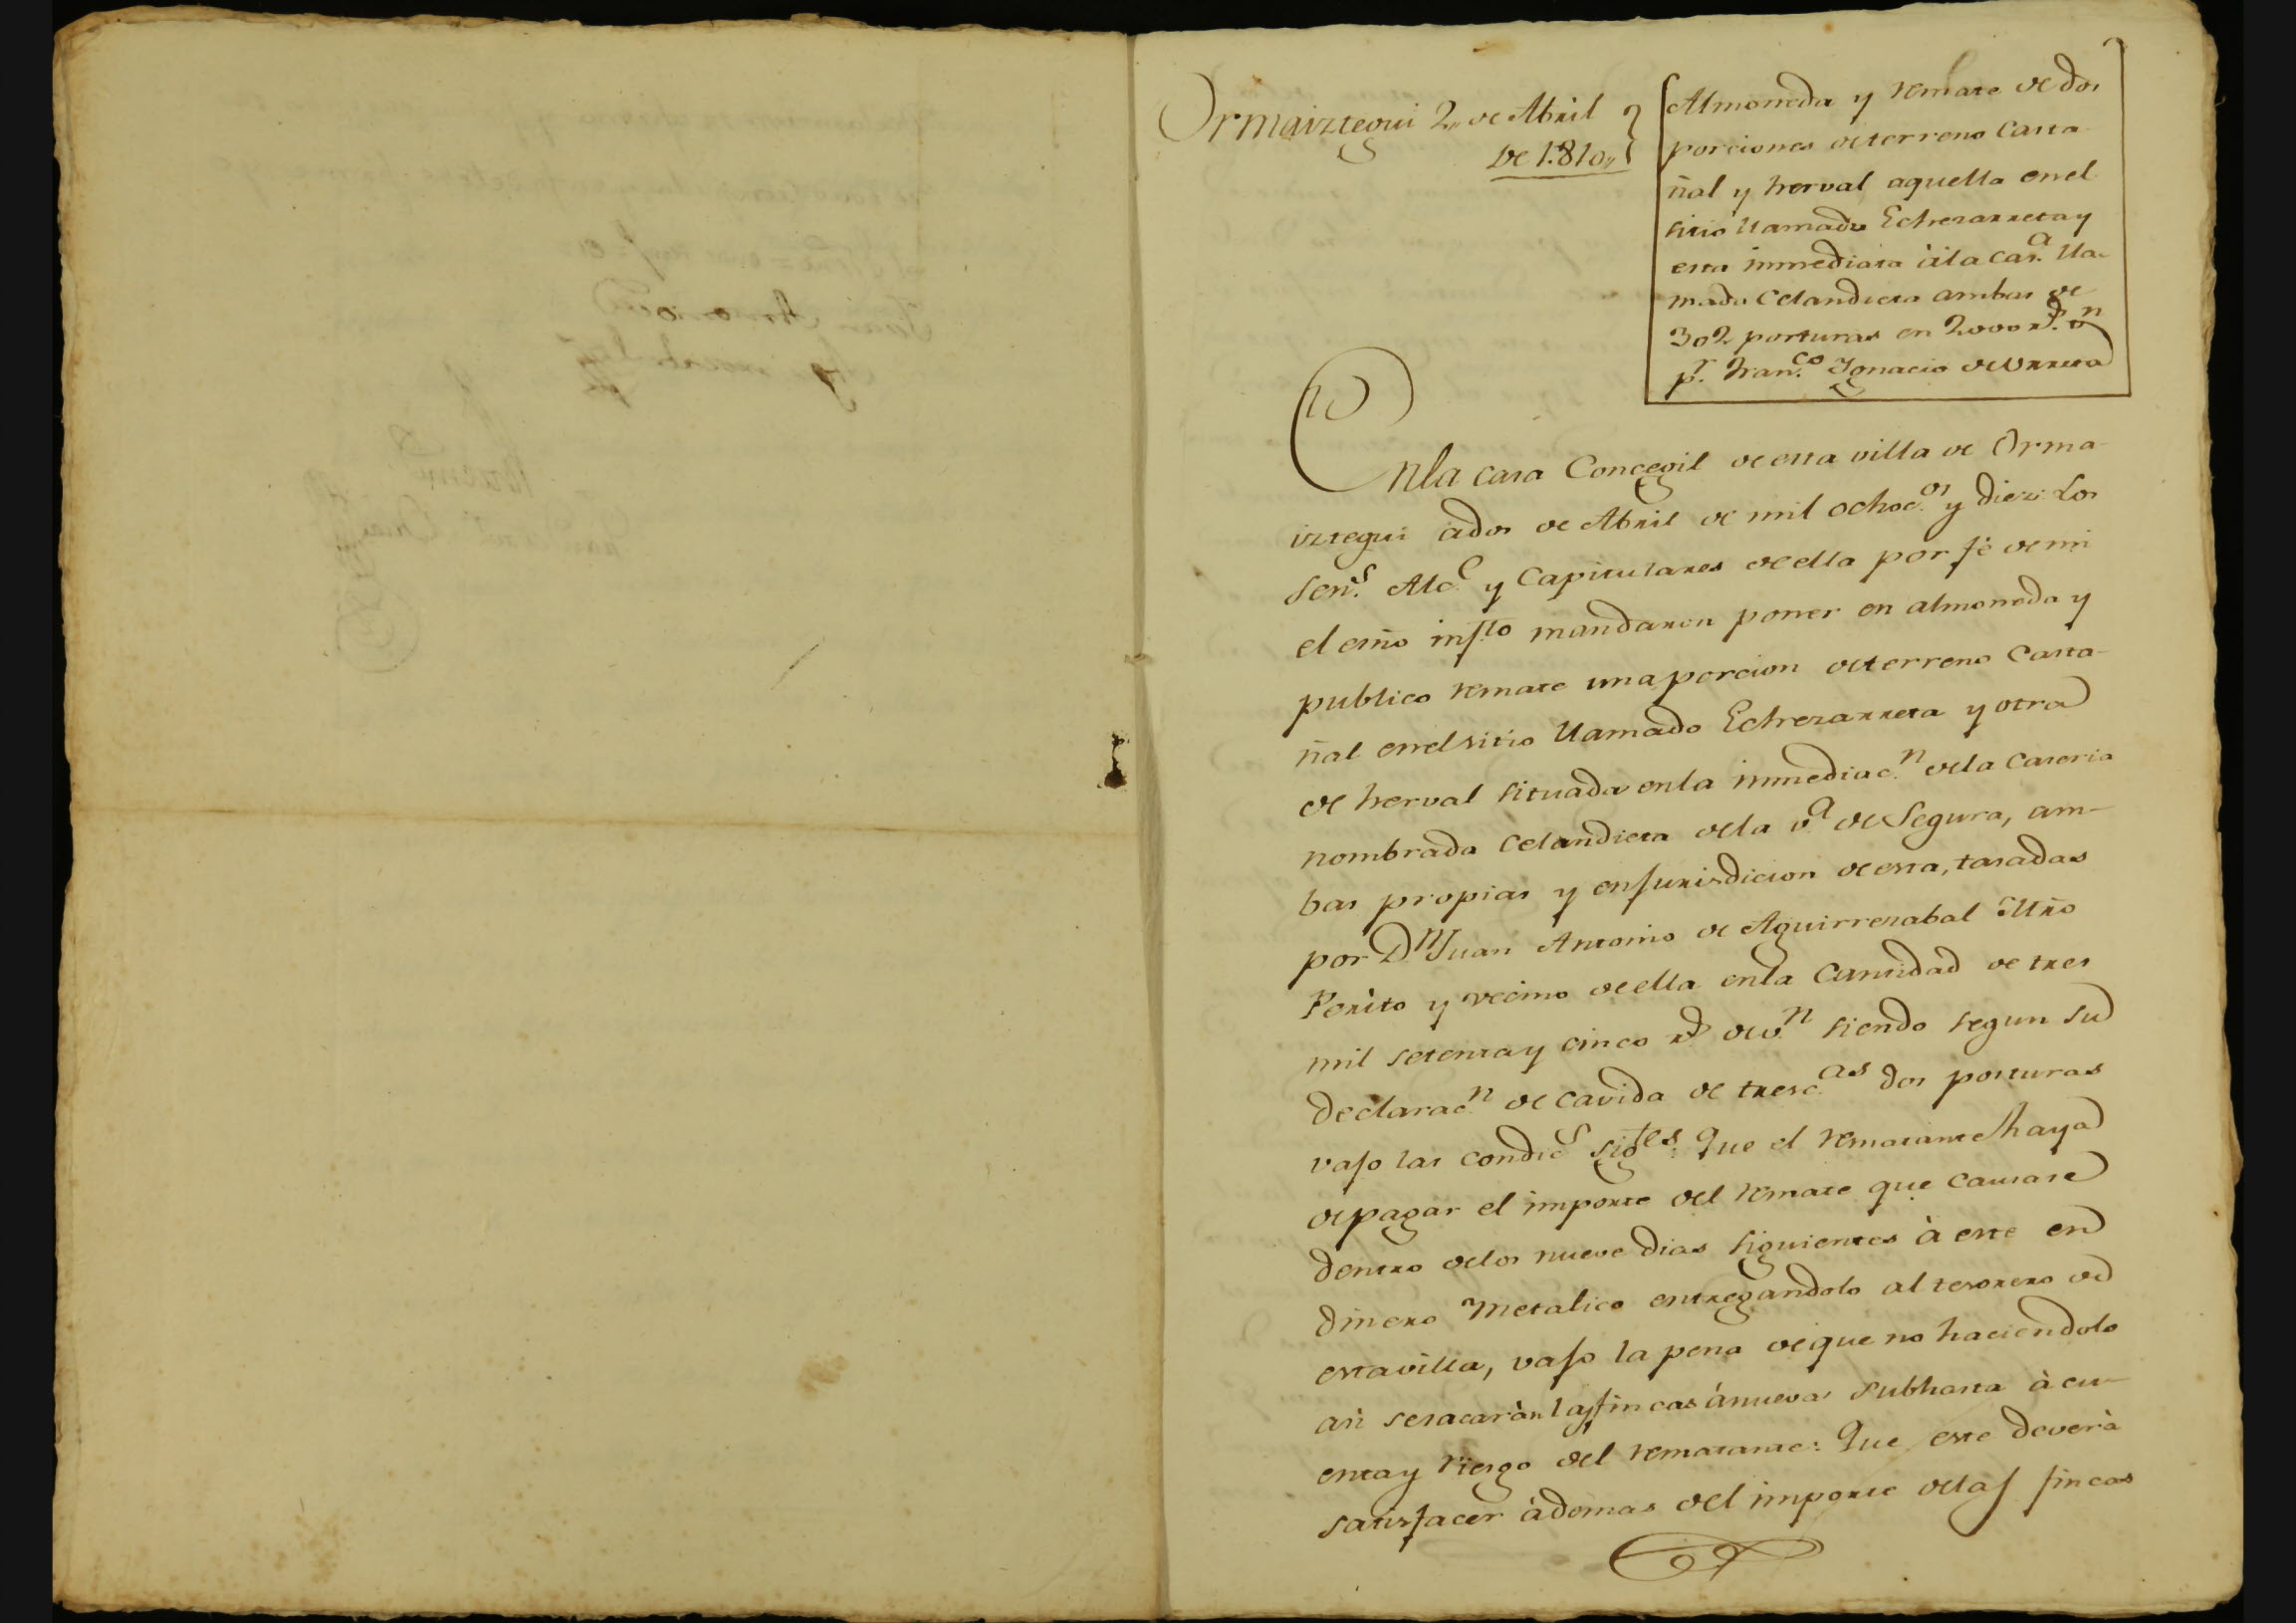 Ormaiztegui 2,, de Abril
de 1.810,,
Almoneda y remate de dos
porciones de terreno Casta-
ñal y herval aquella en el
sitio llamado Echezarreta y
esta inmediata à la cas.ª lla-
mada Celandieta ambas de
302 posturas en 2000 r.s v.n
p.r Fran.co Ygnacio de Urreta
En la casa Concegil de esta villa de Orma-
iztegui a dos de Abril de mil ochoc.os y diez: Los
Señ.s Alc.e y Capitulares de ella por fé de mi
el esño inf.to mandaron poner en almoneda y
publico remate una porcion de terreno Casta-
ñal en el sitio llamado Echezarreta y otra
de herval situada en la inmediac.n de la Caseria
nombrada Celandieta de la v.ª de Segura, am-
bas propias y en jurisdicion de esta, tasadas
por D.n Juan Antonio de Aguirrezabal Mrõ
Perito y vecino de ella en la Cantidad de tres
mil setenta y cinco r.s de v.n siendo segun su
declarac.n de cavida de tresc.as dos posturas
vajo las condic.s sig.tes: Que el rematante haya
de pagar el importe del remate que causare
dentro de los nueve dias siguientes à este en
dinero Metalico entregandolo al tesorero de
esta villa, vajo la pena de que no haciendolo
asi se sacaràn las fincas à nueva subhasta à cu-
enta y riesgo del rematante: Que este deverà
satisfacer àdemas del importe de las fincas